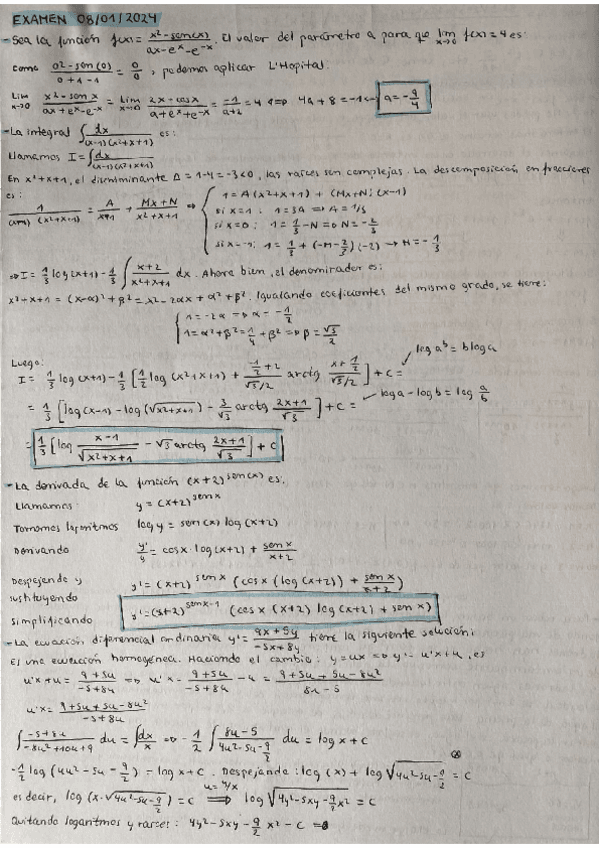 EXAMEN 08/01/2024
- Sea la función f(x) = (x² - sen(x))/(ax - e^x - e^-x). El valor del parámetro a para que lim x→0 f(x) = 4 es:
Como (0² - sen(0))/(0 + 1 - 1) = 0/0, podemos aplicar L'Hopital:
Lim x→0 (x² - sen x)/(ax + e^x - e^-x) = Lim x→0 (2x - cosx)/(a + e^x + e^-x) = -1/(a+2) = 4 <=> 4a + 8 = -1 <=> a = -9/4
- La integral ∫ dx/((x-1)(x²+x+1)) es:
Llamamos I = ∫ dx/((x-1)(x²+x+1))
En x²+x+1, el discriminante Δ = 1-4 = -3 < 0, las raíces son complejas. La descomposición en fracciones
es:
1/((x-1)(x²+x+1)) = A/(x-1) + (Mx+N)/(x²+x+1) ⇒ { 1 = A(x²+x+1) + (Mx+N)(x-1)
si x=1: 1 = 3A ⇒ A = 1/3
si x=0: 1 = 1/3 - N ⇒ N = -2/3
si x=-1: 1 = 1/3 + (-M - 2/3)(-2) → M = -1/3
⇒ I = 1/3 log(x+1) - 1/3 ∫ (x+2)/(x²+x+1) dx. Ahora bien, el denominador es:
x²+x+1 = (x-α)² + β² = x² - 2αx + α² + β². Igualando coeficientes del mismo grado, se tiene:
{ 1 = -2α ⇒ α = -1/2
1 = α² + β² = 1/4 + β² ⇒ β = √3/2
Luego:
log a^b = b log a
I = 1/3 log(x+1) - 1/3 [1/2 log(x²+x+1) + (-1/2 + 2)/(√3/2) arctg (x + 1/2)/(√3/2)] + C =
log a - log b = log a/b
= 1/3 [log(x-1) - log(√(x²+x+1)) - 3/√3 arctg (2x+1)/√3] + C =
= 1/3 [log (x-1)/√(x²+x+1) - √3 arctg (2x+1)/√3] + C
- La derivada de la función (x+2)^sen(x) es:
Llamamos y = (x+2)^senx
Tomamos logaritmos log y = sen(x) log(x+2)
Derivando y'/y = cosx · log(x+2) + senx/(x+2)
Despejando y
sustituyendo y' = (x+2)^senx (cosx (log(x+2)) + senx/(x+2))
simplificando y' = (x+2)^(senx-1) (cosx (x+2) log(x+2) + senx)
- La ecuación diferencial ordinaria y' = (9x+5y)/(-5x+8y) tiene la siguiente solución:
Es una ecuación homogénea. Haciendo el cambio: y = ux ⇒ y' = u'x + u, es
u'x + u = (9+5u)/(-5+8u) ⇒ u'x = (9+5u)/(-5+8u) - u = (9+5u+5u-8u²)/(8u-5)
u'x = (9+5u+5u-8u²)/(-5+8u)
∫ (-5+8u)/(-8u²+10u+9) du = ∫ dx/x ⇒ -1/2 ∫ (8u-5)/(4u²-5u-9/2) du = log x + C
-1/2 log(4u²-5u-9/2) = log x + C. Despejando: log(x) + log √(4u²-5u-9/2) = C
es decir, log(x·√(4u²-5u-9/2)) = C ⇒ u=y/x log √(4y²-5xy-9/2 x²) = C
Quitando logaritmos y raíces: 4y² - 5xy - 9/2 x² = C ⇒